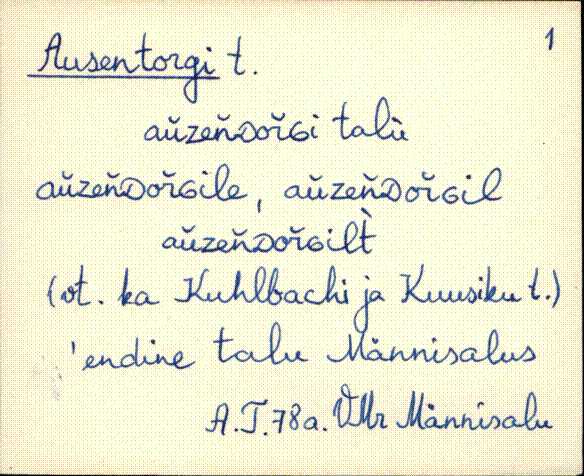 1
Ausentorgi t.
aŭzeňᴅořɢi talù
aŭzeňᴅořɢile, aŭzeňᴅořɢil
aŭzeňᴅořɢilt̀
(vt. ka Kuhlbachi ja Kuusiku t.)
'endine talu Männisalus
A.T. 78a. VMr Männisalu